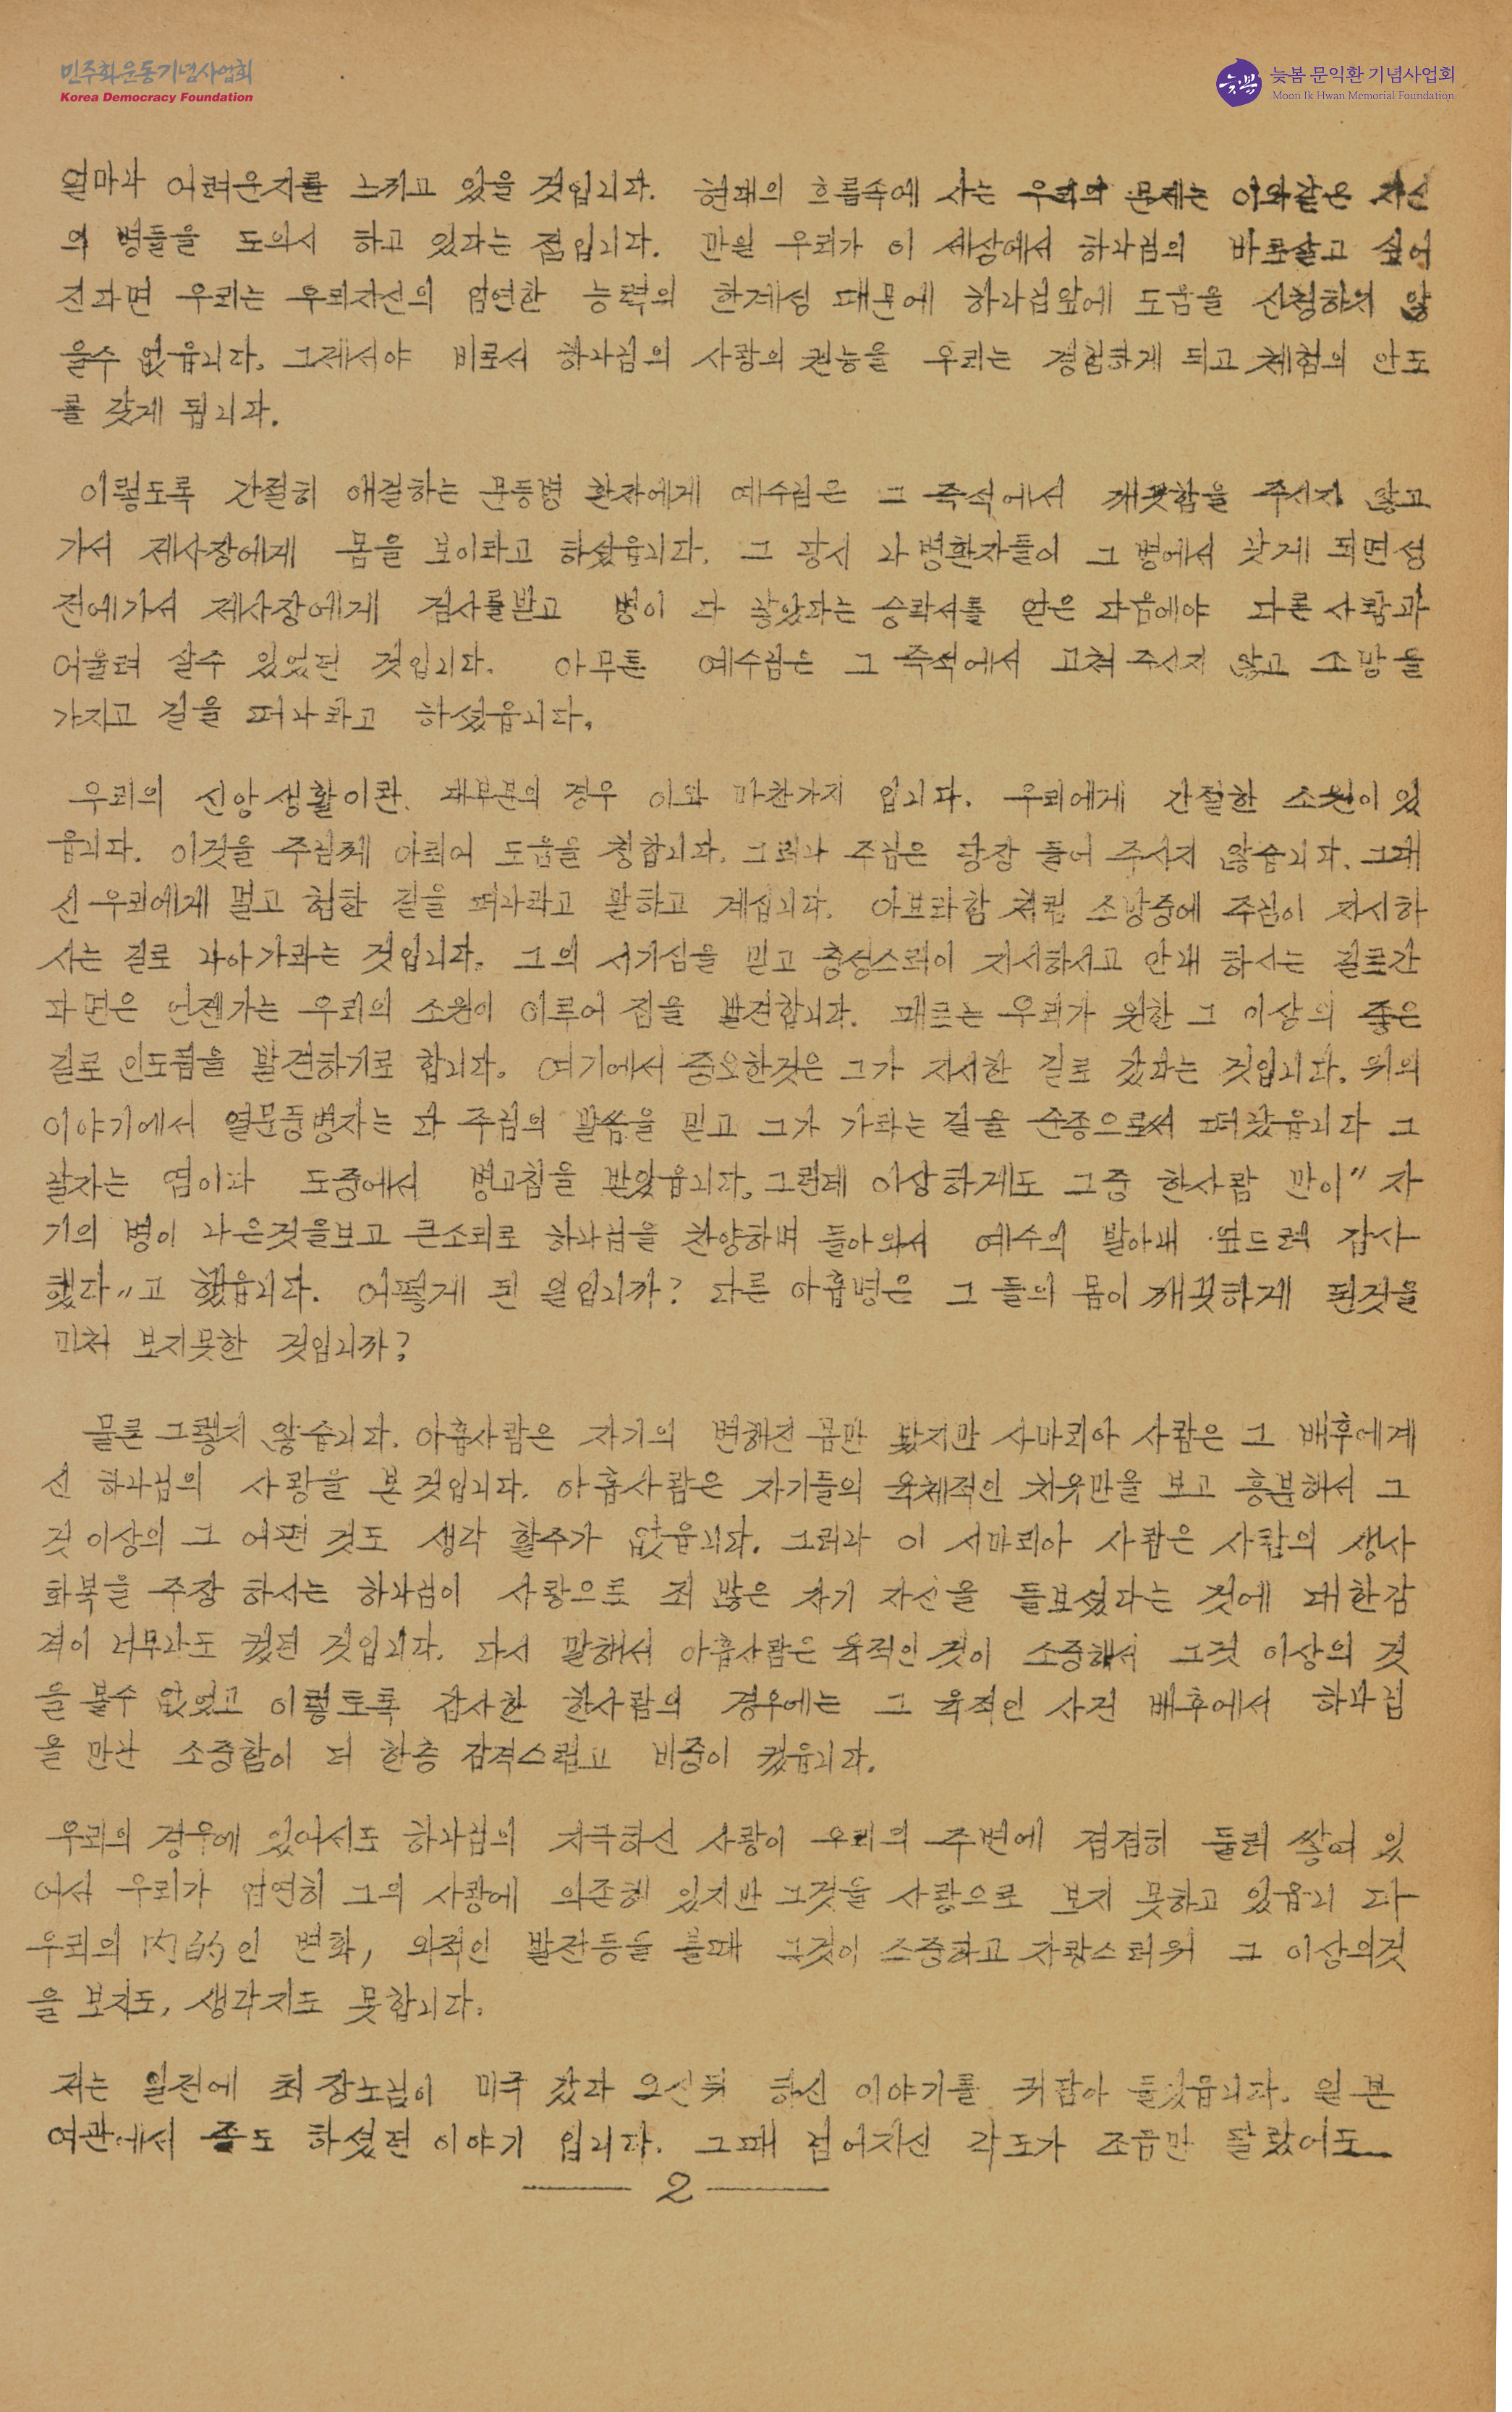 민주화운동기념사업회
Korea Democracy Foundation
늦봄 문익환 기념사업회
Moon Ik Hwan Memorial Foundation
얼마나 어려운지를 느끼고 있을 것입니다. 현재의 흐름속에 사는 우리의 문제는 이와같은 자신
의 병들을 도외시 하고 있다는 점입니다. 만일 우리가 이 세상에서 하나님의 바로살고 싶어
진다면 우리는 우리자신의 엄연한 능력의 한계성 때문에 하나님앞에 도움을 신청하지 않
을수 없읍니다. 그제서야 비로서 하나님의 사랑의 권능을 우리는 경험하게 되고 체험의 안도
를 갖게 됩니다.
이렇도록 간절히 애걸하는 문둥병 환자에게 예수님은 그 즉석에서 깨끗함을 주시지 않고
가서 제사장에게 몸을 보이라고 하셨읍니다. 그 당시 나병환자들이 그 병에서 낫게 되면 성
전에가서 제사장에게 검사를받고 병이 다 낳았다는 승락서를 얻은 다음에야 다른 사람과
어울려 살수 있었던 것입니다. 아무튼 예수님은 그 즉석에서 고쳐 주시지 않고 소망을
가지고 길을 떠나라고 하셨읍니다.
우리의 신앙생활이란 대부분의 경우 이와 마찬가지 입니다. 우리에게 간절한 소원이 있
읍니다. 이것을 주님께 아뢰어 도움을 청합니다. 그러나 주님은 당장 들어 주시지 않습니다. 그대
신 우리에게 멀고 험한 길을 떠나라고 말하고 계십니다. 아브라함 처럼 소망중에 주님이 지시하
시는 길로 나아가라는 것입니다. 그의 서기심을 믿고 충성스러이 지시하시고 안내 하시는 길로간
다면은 언젠가는 우리의 소원이 이루어 짐을 발견합니다. 때로는 우리가 원한 그 이상의 좋은
길로 인도됨을 발견하기로 합니다. 여기에서 중요한것은 그가 지시한 길로 갔다는 것입니다. 위의
이야기에서 열문둥병자는 다 주님의 말씀을 믿고 그가 가라는 길을 순종으로써 떠났읍니다 그
날자는 염이다 도중에서 병고침을 받았읍니다. 그런데 이상하게도 그중 한사람 만이 " 자
기의 병이 나은것을보고 큰소리로 하나님을 찬양하며 돌아와서 예수의 발아래 엎드려 감사
했다 " 고 했읍니다. 어떻게 된 일입니까? 다른 아홉명은 그 들의 몸이 깨끗하게 된것을
미처 보지못한 것입니까?
물론 그렇지 않습니다. 아홉사람은 자기의 변해진 몸만 봤지만 사마리아 사람은 그 배후에계
신 하나님의 사랑을 본 것입니다. 아홉사람은 자기들의 육체적인 치유만을 보고 흥분해서 그
것 이상의 그 어떤 것도 생각 할수가 없읍니다. 그러나 이 서마리아 사람은 사람의 생사
화복을 주장 하시는 하나님이 사랑으로 죄 많은 자기 자신을 돌보셨다는 것에 대한감
격이 너무나도 컸던 것입니다. 다시 말해서 아홉사람은 육적인 것이 소중해서 그것 이상의 것
을 볼수 없었고 이렇토록 감사한 한사람의 경우에는 그 육적인 사건 배후에서 하나님
을 만난 소중함이 더 한층 감격스럽고 비중이 컸읍니다.
우리의 경우에 있어서도 하나님의 지극하신 사랑이 우리의 주변에 겹겹히 둘러 쌓여 있
어서 우리가 엄연히 그의 사랑에 의존해 있지만 그것을 사랑으로 보지 못하고 있읍니 다
우리의 内的인 변화, 외적인 발전등을 볼때 그것이 소중하고 자랑스러워 그 이상의것
을 보지도, 생각지도 못합니다.
저는 일전에 최 장노님이 미국 갔다 오신뒤 하신 이야기를 귀담아 들었읍니다. 일본
여관에서 졸도 하셨던 이야기 입니다. 그때 넘어지신 각도가 조금만 달랐어도
— 2 —